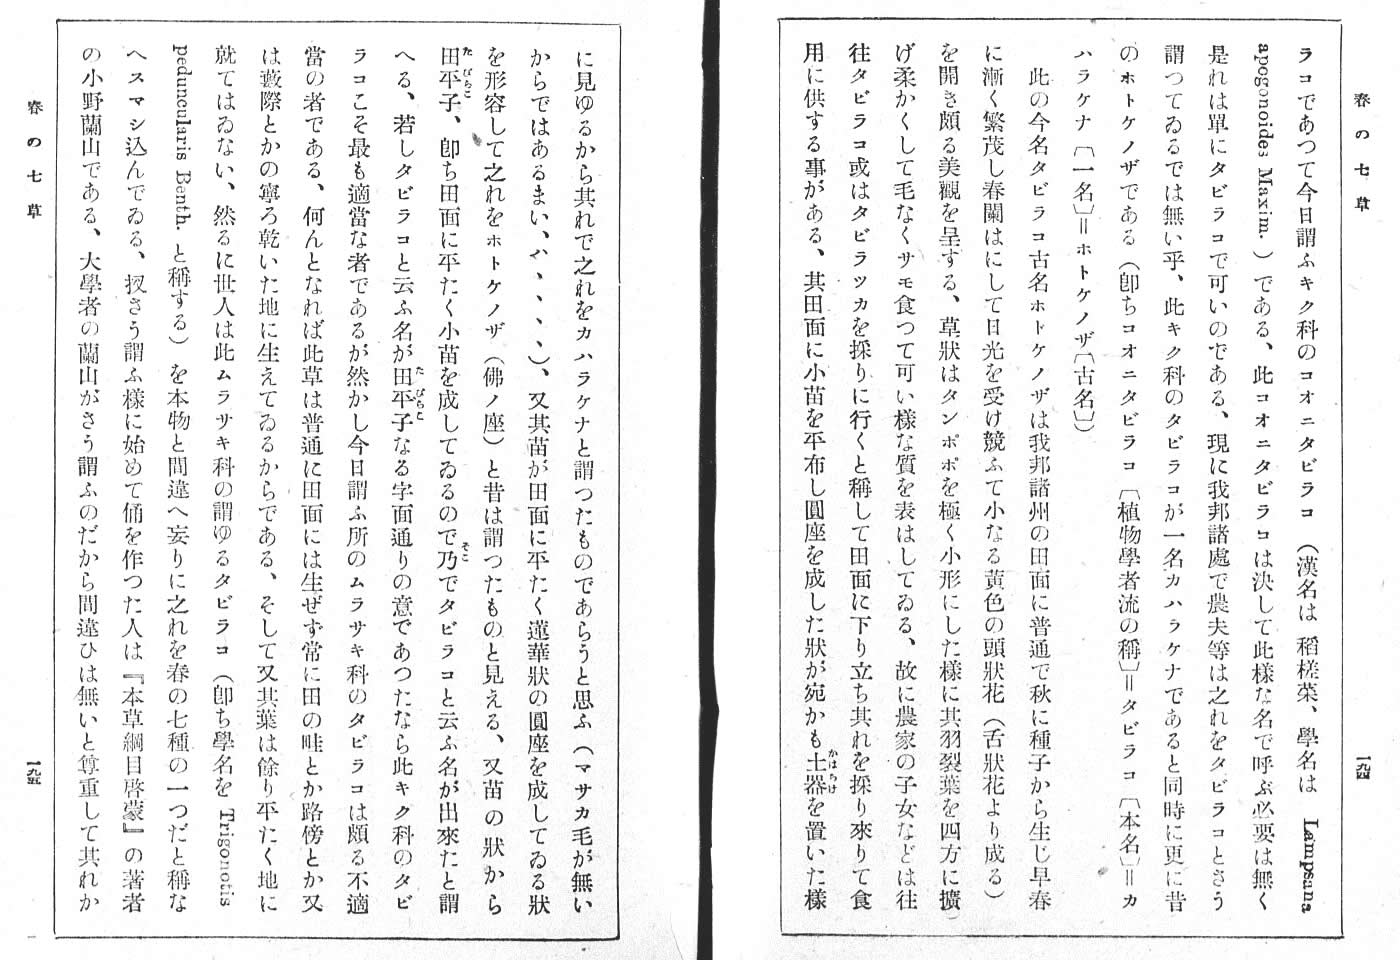 春の七草
一九四
ラコであつて今日謂ふキク科のコオニタビラコ（漢名は 稻槎菜、學名は Lampsana
apogonoides Maxim. ）である、此コオニタビラコは決して此樣な名で呼ぶ必要は無く
是れは單にタビラコで可いのである、現に我邦諸處で農夫等は之れをタビラコとさう
謂つてゐるでは無い乎、此キク科のタビラコが一名カハラケナであると同時に更に昔
のホトケノザである（卽ちコオニタビラコ〔植物學者流の稱〕＝タビラコ〔本名〕＝カ
ハラケナ〔一名〕＝ホトケノザ〔古名〕）
此の今名タビラコ古名ホトケノザは我邦諸州の田面に普通で秋に種子から生じ早春
に漸く繁茂し春闌はにして日光を受け競ふて小なる黄色の頭狀花（舌狀花より成る）
を開き頗る美觀を呈する、草狀はタンポポを極く小形にした樣に其羽裂葉を四方に擴
げ柔かくして毛なくサモ食つて可い樣な質を表はしてゐる、故に農家の子女などは往
往タビラコ或はタビラツカを採りに行くと稱して田面に下り立ち其れを採り來りて食
用に供する事がある、其田面に小苗を平布し圓座を成した狀が宛かも土器かはらけを置いた樣
に見ゆるから其れで之れをカハラケナと謂つたものであらうと思ふ（マサカ毛が無い
からではあるまい、ハ、、、、）、又其苗が田面に平たく蓮華狀の圓座を成してゐる狀
を形容して之れをホトケノザ（佛ノ座）と昔は謂つたものと見える、又苗の狀から
田平子たびらこ、卽ち田面に平たく小苗を成してゐるので乃そこでタビラコと云ふ名が出來たと謂
へる、若しタビラコと云ふ名が田平子たびらこなる字面通りの意であつたなら此キク科のタビ
ラコこそ最も適當な者であるが然かし今日謂ふ所のムラサキ科のタビラコは頗る不適
當の者である、何んとなれば此草は普通に田面には生ぜず常に田の畦とか路傍とか又
は藪際とかの寧ろ乾いた地に生えてゐるからである、そして又其葉は餘り平たく地に
就てはゐない、然るに世人は此ムラサキ科の謂ゆるタビラコ（卽ち學名を Trigonotis
peduncularis Benth. と稱する）を本物と間違へ妄りに之れを春の七種の一つだと稱な
へスマシ込んでゐる、扨さう謂ふ樣に始めて俑を作つた人は『本草綱目啓蒙』の著者
の小野蘭山である、大學者の蘭山がさう謂ふのだから間違ひは無いと尊重して其れか
春の七草
一九五